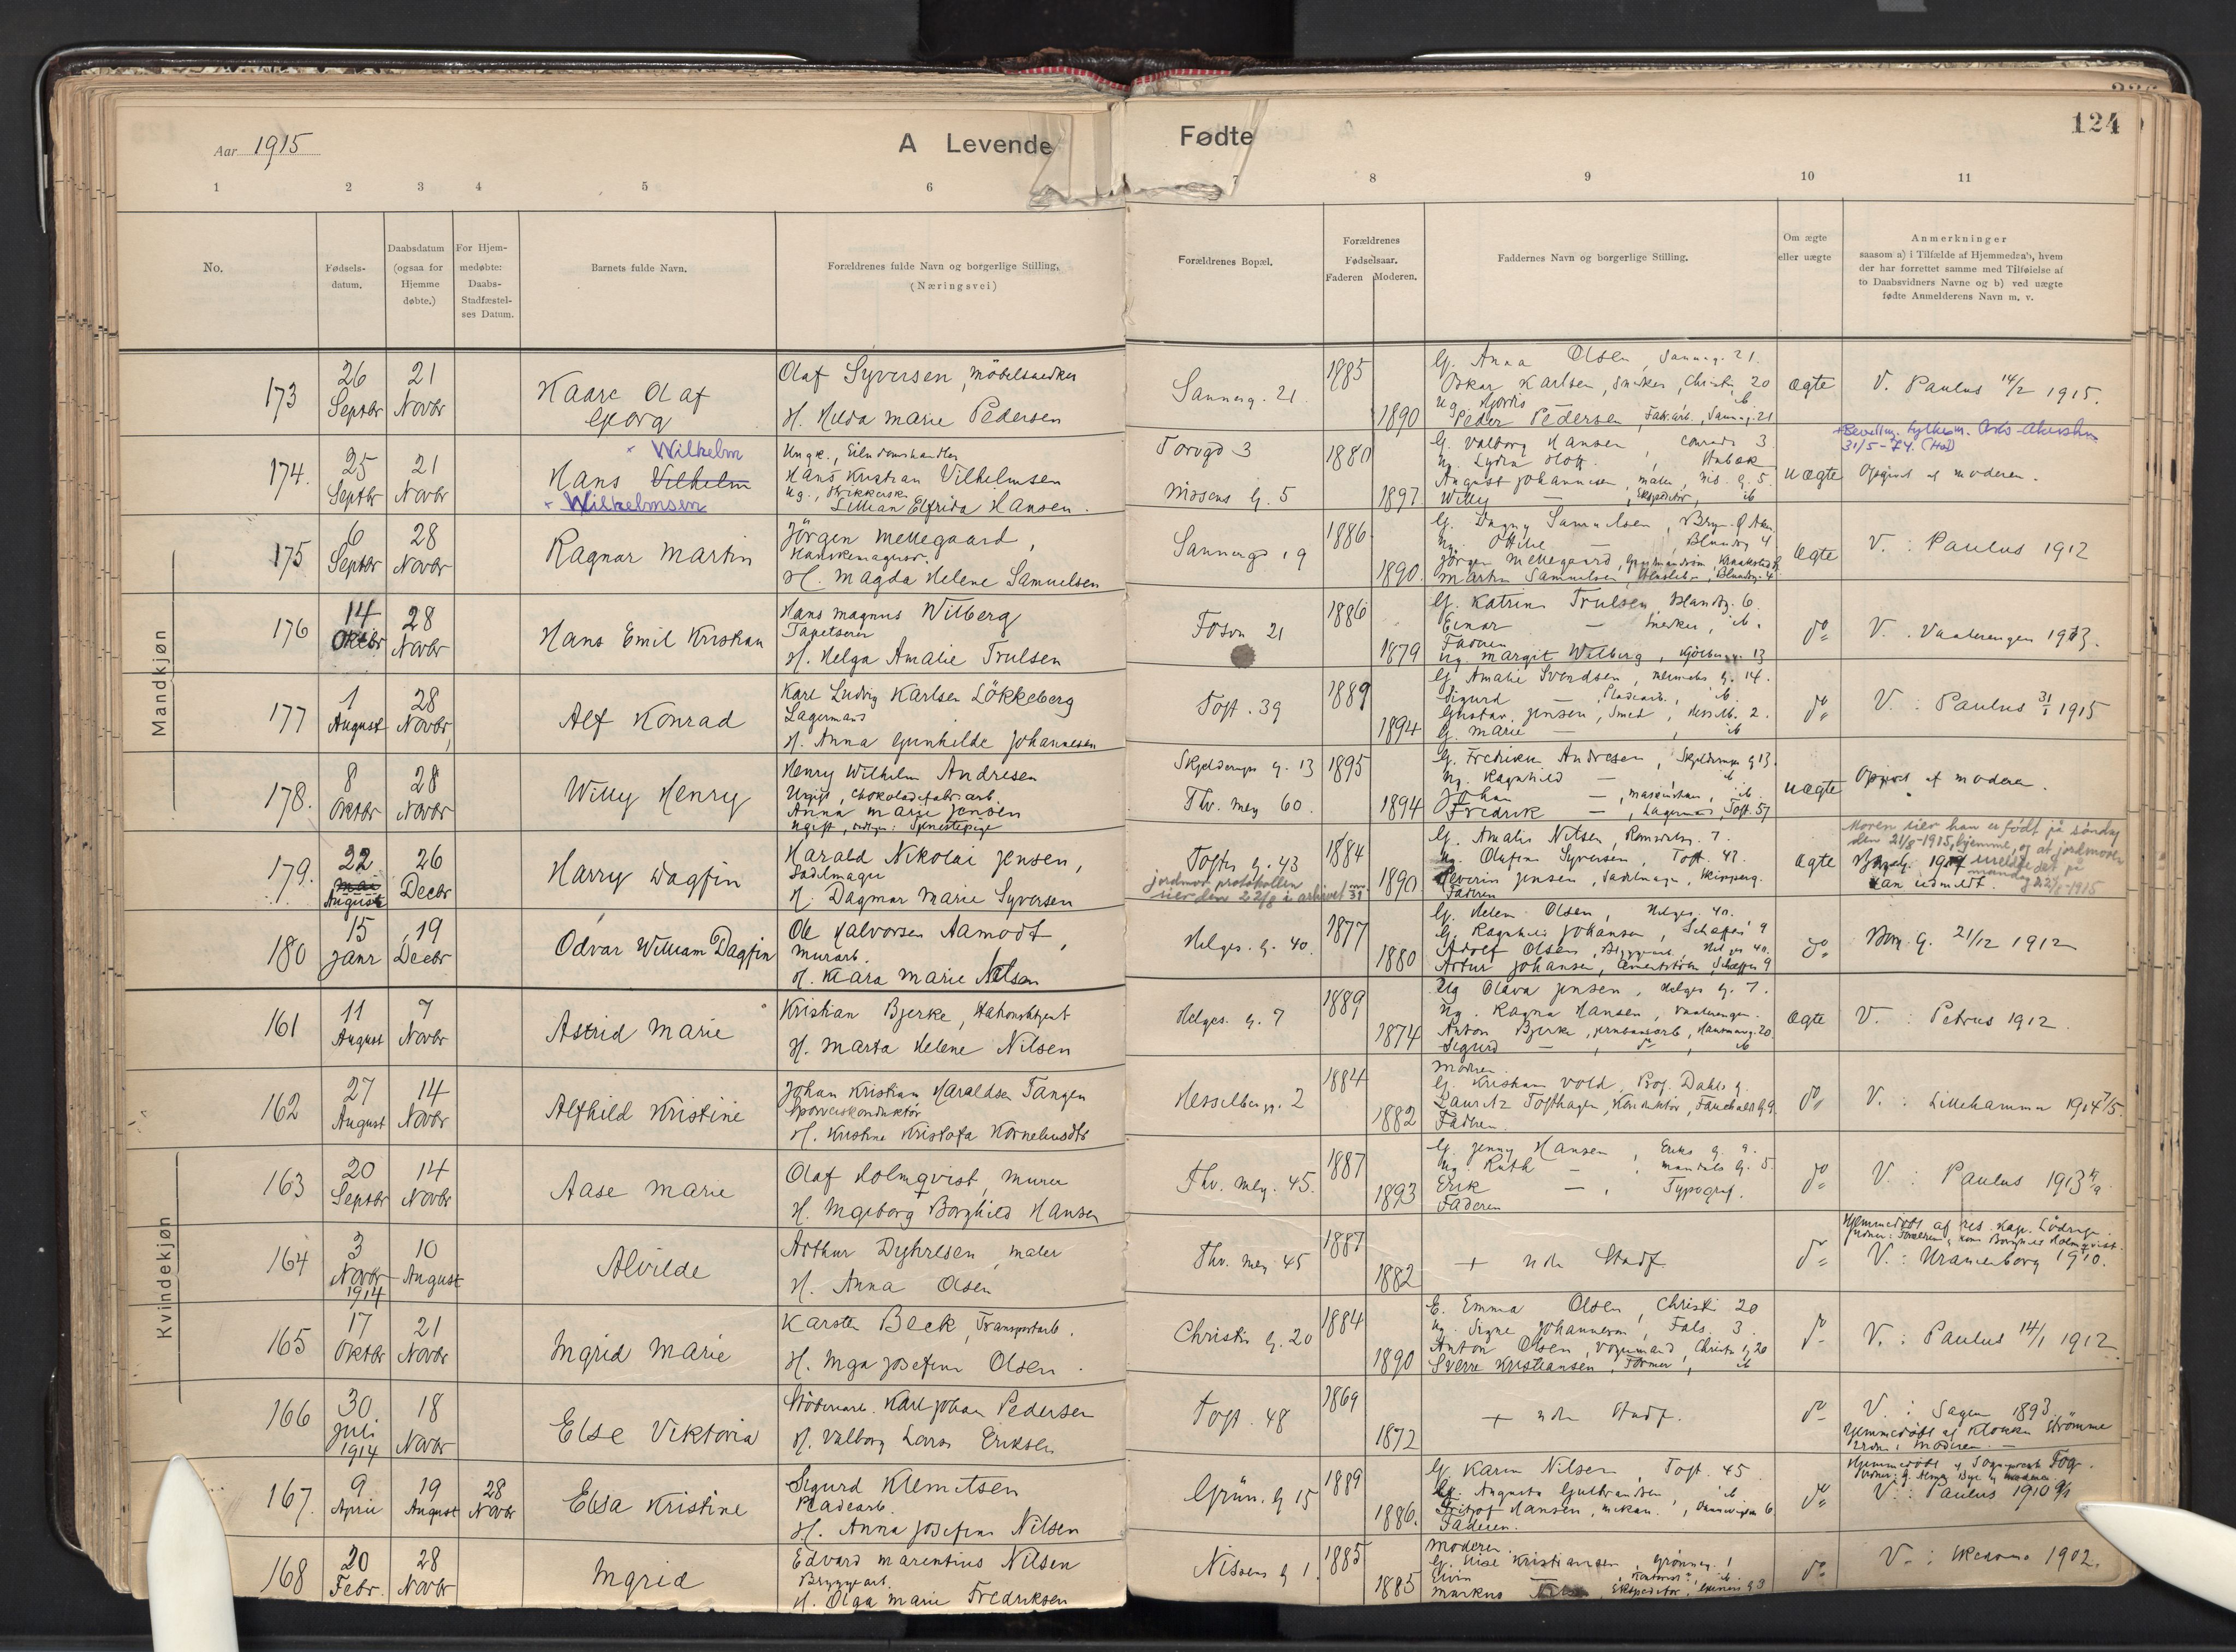 Aar 1915
A Levende Fødte
124
1 2 3 4 5 6 7 8 9 10 11
No.
Fødsels-
datum.
Daabsdatum
(ogsaa for
Hjemme
døbte.)
For Hjem-
medøbte:
Daabs-
Stadfæstel-
ses Datum.
Barnets fulde Navn.
Forældrenes fulde Navn og borgerlige Stilling.
(Næringsvei)
Forældrenes Bopæl.
Forældrenes
Fødselsaar.
Faderen Moderen.
Faddernes Navn og borgerlige Stilling.
Om ægte
eller uægte
Anmerkninger
saasom a) i Tilfælde af Hjemmedaab, hvem
der har forrettet samme med Tilføielse af
to Daabsvidners Navne og b) ved uægte
fødte Anmelderens Navn m. v.
Mandkjøn
173
26 Septbr
21 Novbr
Kaare Olaf
Georg
Olaf Syversen, möbelsnedker
H. Hilda Marie Pedersen
Sannerg. 21.
1885
1890
G. Anna Olsen, Sannerg. 21.
Oskar Karlsen, Snedker, Christi. 20
Ug. Hjördis
Peder Pedersen, Fabr.arb., Sannerg. 21
ægte
V. Paulus 14/2 1915.
174.
25 Septbr
21 Novbr
× Wilhelm
Hans Vilhelm
× Wilhelmsen
Ungk., Eiendomshandler
Hans Kristian Vilhelmsen
Ug., Strikkerske
Lillian Elfrida Hansen.
Torvgd 3
Nissens G. 5
1880
1897
G. Valborg Hansen, Conrads 3
Ug. Lydia
August Johannesen, maler, Nis. g. 5.
Willy — , Ekspeditör, ib
uægte
31/5-74.
Opgivet af moderen.
175
6 Septbr
28 Novbr
Ragnar Martin
Jörgen Mellegaard,
Hanskemager.
H. Magda Helene Samuelsen
Sannergd 19
1886
1890.
G. Dagny Samuelsen,
Ug. Ottilie
Jörgen Mellegaard,
Martin Samuelsen,
Ægte
V. : Paulus 1912
176
14 Oktbr
28 Novbr
Hans Emil Kristian
Hans Magnus Wilberg
Tapetserer
H. Helga Amalie Trulsen
Fossv 21
1886
1879
G. Katrine Trulsen,
Einar — Snedker, ib.
Faderen
Ug Margit Wilberg, 13
do
V. Vaalerengen 1913.
177
1 August
28 Novbr,
Alf Konrad
Karl Ludvig Karlsen Lökkeberg
Lagermand
H. Anna Gunhilde Johannesen
Toft. 39
1889
1894
G. Amalie Svendsen, 14.
Sigurd — Pladearb., ib.
Gustav Jensen, Smed, Hesselb. 2.
G. Marie — , ib
do
V. : Paulus 31/1 1915
178.
8 Oktbr
28 Novbr
Willy Henry
Henry Wilhelm Andresen
Ugift, Chokoladefabr.arb.
Anna Marie Jensen
Ugift, Tjenestepige
Skjeldrups G. 13
Thv. Mey. 60.
1895
1894
G. Fredrikke Andresen, Skjeldrups g 13.
Ug. Ragnhild — ib
Johan — , maskinist, ib.
Fredrik — , Lagermand, Toft. 57
uægte
Opgivet af moderen.
179.
22 Mai August
26 Decbr
Harry Dagfin
Harald Nikolai Jensen,
Sadelmager
H. Dagmar Marie Syversen
Toftes G. 43
jordmor protokollen
sier den 22/8 i arkivet
1884
1890
G. Amalie Nilsen, 7.
Ug. Olufine Syversen, Toft. 43.
Severin Jensen, Sadelmager,
Faderen
ægte
Moren sier han er født på søndag
den 21/8-1915, hjemme, og at jordmoren
meldte det på
mandag 22/8-1915
180
15 Janr
19 Decbr
Odvar William Dagfin
Ole Halvorsen Aamodt,
Murarb.
H. Klara Marie Nilsen
Helges. G. 40.
1877
1880
G. Helene Olsen, Helges. 40.
G. Ragnhild Johansen, 9
Adolf Olsen, Bryggearb., Helges 40.
Artur Johansen, 9
do
Berg. G. 21/12 1912
161
11 August
7 Novbr
Astrid Marie
Kristian Bjerke, Stationsbetjent
H. Marta Helene Nilsen
Helges. G. 7
1889
1874
Ug Olava Jensen, Helges G. 7.
Ug. Ragna Hansen, Vaalerengen.
Anton Bjerke, jernbanearb., 20
Sigurd — , do , ib
ægte
V. : Petrus 1912.
162
27 August
14 Novbr
Alfhild Kristine
Johan Kristian Haraldsen Tangen
Sporveiskonduktör
H. Kristine Kristofa Kornelinsdtr
Hesselbergs. 2
1884
1882
Modren
G. Kristiane Vold, Prof. Dahls g.
Lauritz Tofthagen, Konduktör,
Faderen.
do
V. : Lillehammer 1904 7/5.
Kvindekjøn
163
20 Septbr
14 Novbr
Aase Marie
Olaf Holmqvist, murer
H. Ingeborg Borghild Hansen
Thv. Mey. 45.
1887
1893
G. Jenny Hansen, Eriks G. 9.
Ug. Ruth — , 5.
Erik — , Typograf.
Faderen
do
V. : Paulus 1913
164
3 Novbr 1914
10 August
Alvilde
Arthur Dyhrlsen, maler
H. Anna Olsen
Thv. Mey 45
1887
1882
+ uden Stadf.
do
Hjemmedöbt af res. kap.
V. : Uranienborg 1910.
165
17 Oktbr
21 Novbr
Ingrid Marie
Karsten Beck, Transportarb.
H. Inga Josefine Olsen.
Christies G. 20
1884
1890
E. Emma Olsen, Christi 20
Ug. Signe Johannesen, Fals. 3.
Anton Olsen, Vognmand, Christi g 20
Sverre Kristiansen, Former, ib
do
V. : Paulus 14/1 1912.
166
30 Juli 1914
18 Novbr
Else Viktoria
Karl Johan Pedersen
H. Valborg Larsen Eriksen
Toft. 48
1869
1872
+ uden Stadf.
do
V. : Sagen 1893.
Hjemmedöbt af Klokker Strömme
Vidne: Moderen. —
167.
9 April
19 August
28 Novbr
Elsa Kristine
Sigurd Klemetsen
Pladearb.
H. Anna Josefine Nilsen
Grün. G 15
1889
1886.
G. Karen Nilsen, Toft. 45
G. Augusta Gulbrandsen, ib
Fritjof Hansen, mekan., 6
Faderen.
do
Hjemmedöbt af Sogneprest
V : Paulus 1910
168
20 Febr.
28 Novbr
Ingrid
Edvard Marentius Nilsen
Bryggearb.
H. Olga Marie Fredriksen
Nissens G 1.
1885
1885
Moderen.
G. Kristiansen, 1
Markus , Ekspeditör,
do
1902.